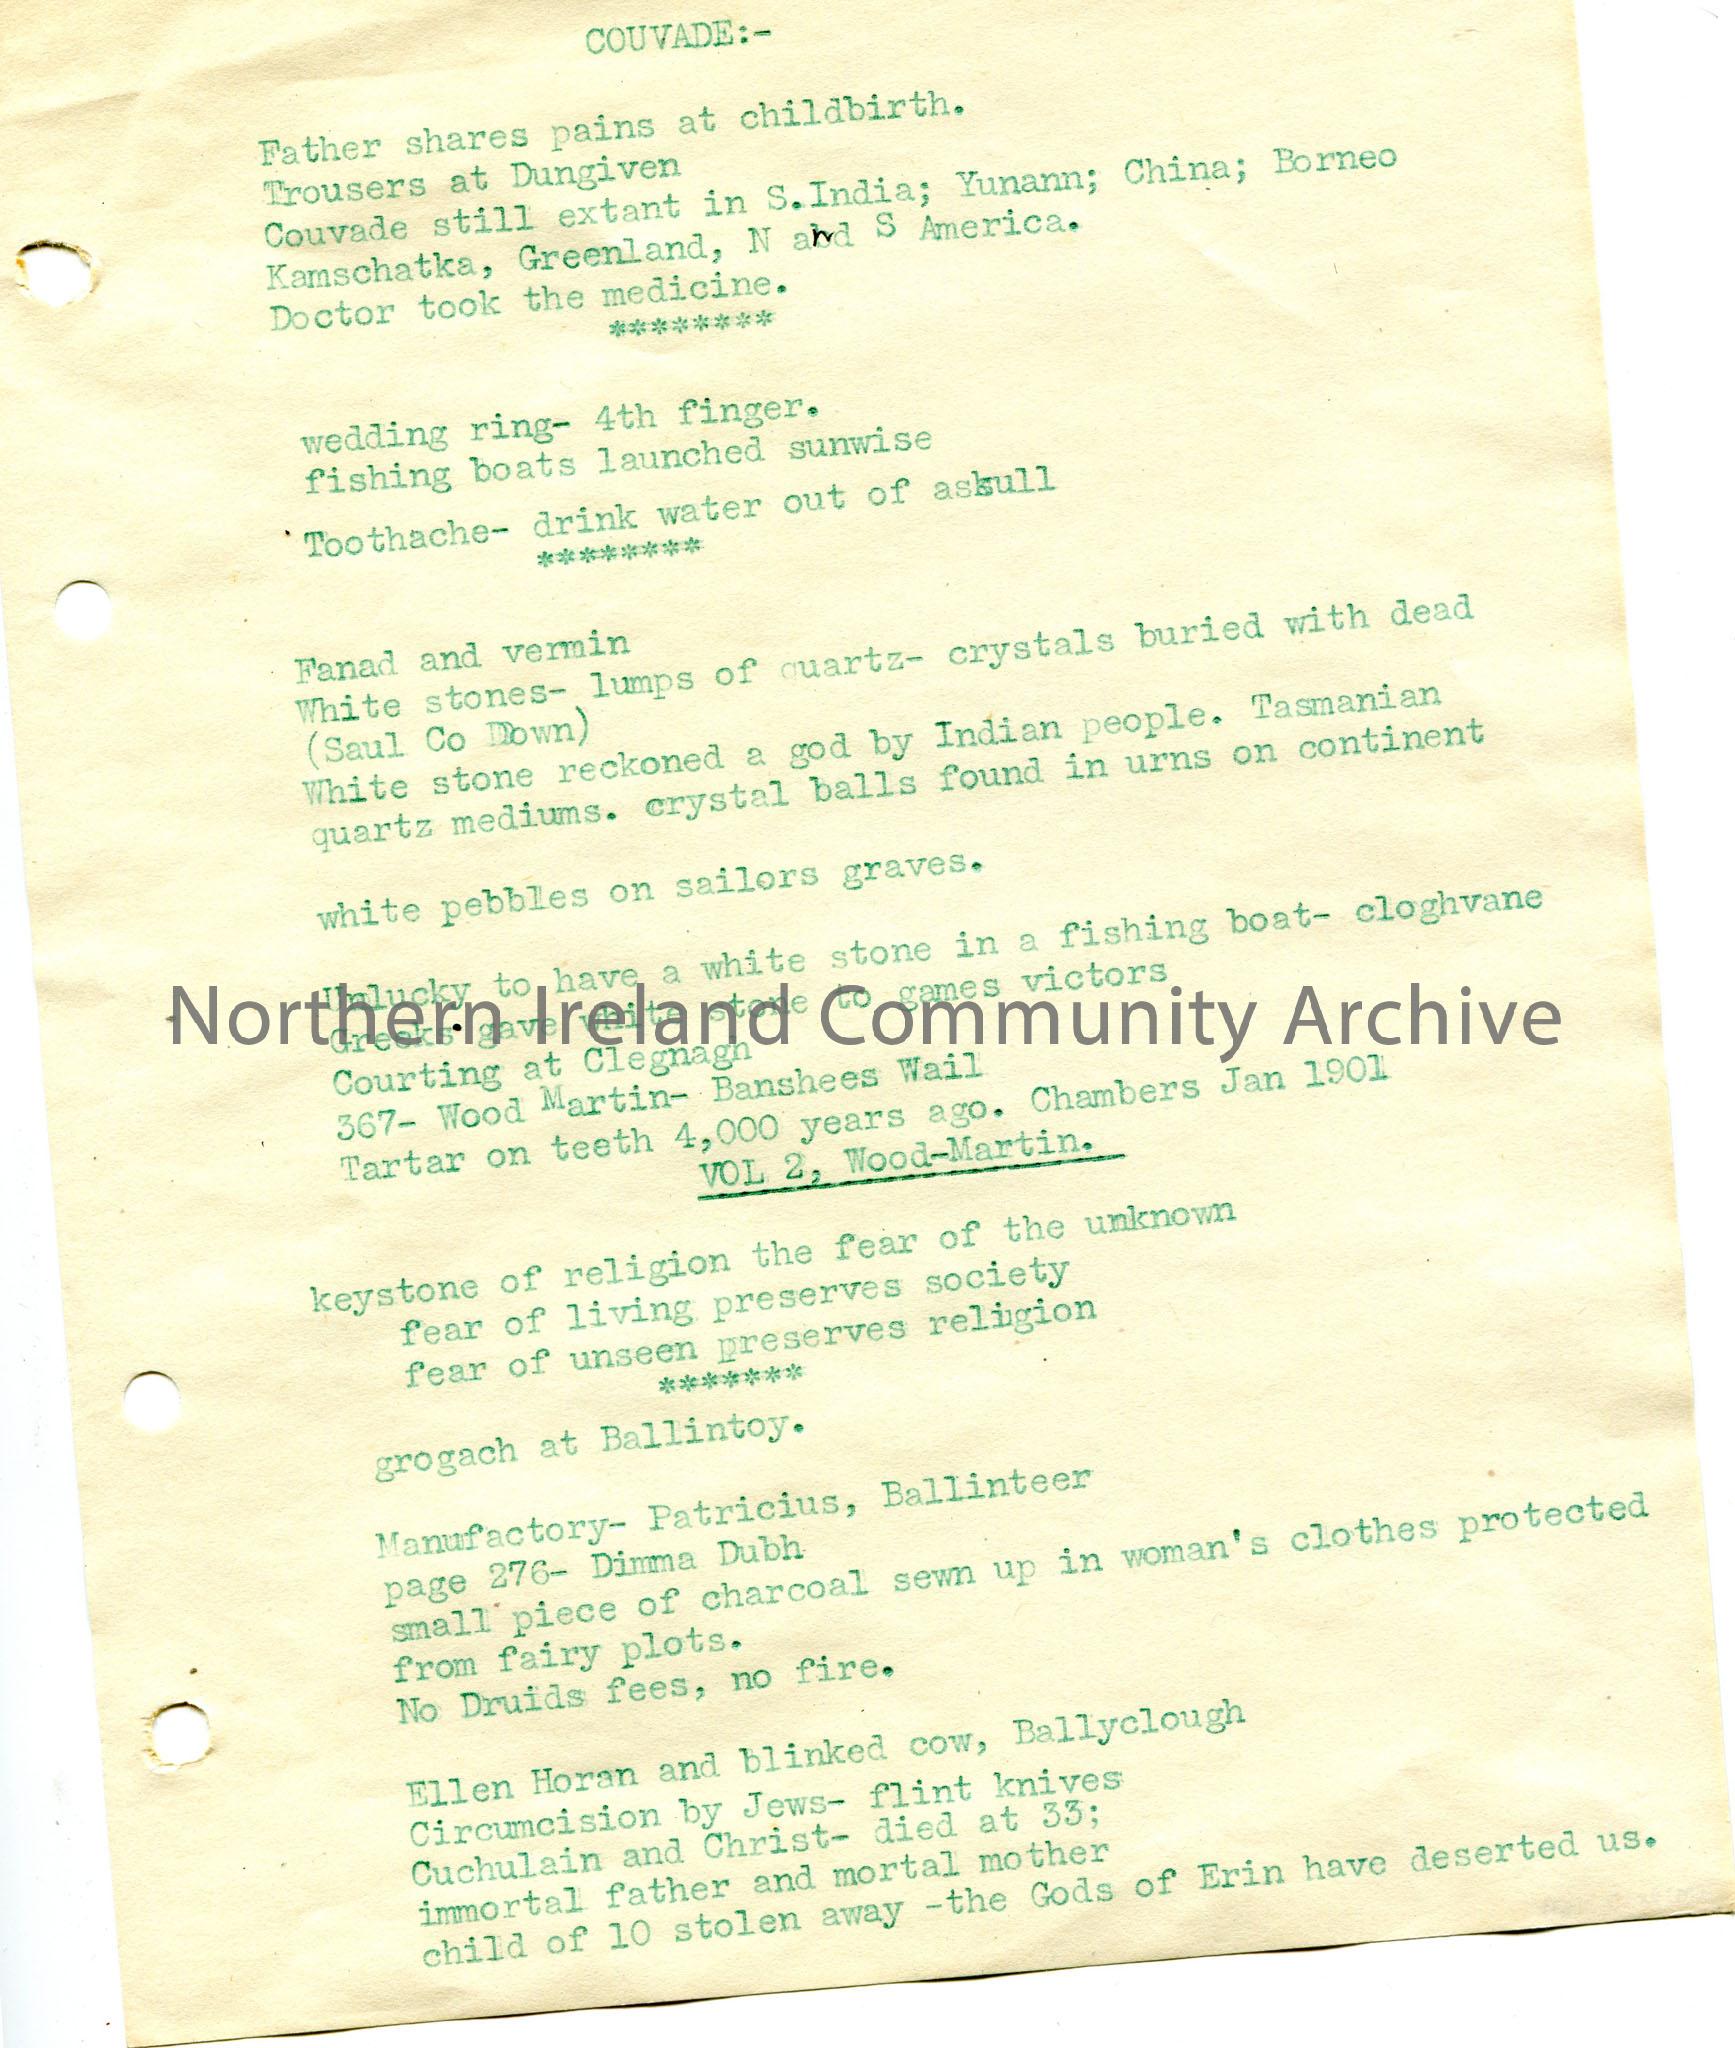 COUVADE:-
Father shares pains at childbirth.
Trousers at Dungiven
Couvade still extant in S.India; Yunann; China; Borneo
Kamschatka, Greenland, N and S America.
Doctor took the medicine.
********
wedding ring- 4th finger.
fishing boats launched sunwise
Toothache- drink water out of askull
********
Fanad and vermin
White stones- lumps of quartz- crystals buried with dead
(Saul Co Down)
White stone reckoned a god by Indian people. Tasmanian
quartz mediums. crystal balls found in urns on continent
white pebbles on sailors graves.
Unlucky to have a white stone in a fishing boat- cloghvane
Greeks gave white stone to games victors
Northern Ireland Community Archive
Courting at Clegnagh
367- Wood Martin- Banshees Wail
Tartar on teeth 4,000 years ago. Chambers Jan 1901
VOL 2, Wood-Martin.
keystone of religion the fear of the unknown
fear of living preserves society
fear of unseen preserves religion
*******
grogach at Ballintoy.
Manufactory- Patricius, Ballinteer
page 276- Dimma Dubh
small piece of charcoal sewn up in woman's clothes protected
from fairy plots.
No Druids fees, no fire.
Ellen Horan and blinked cow, Ballyclough
Circumcision by Jews- flint knives
Cuchulain and Christ- died at 33;
immortal father and mortal mother
child of 10 stolen away -the Gods of Erin have deserted us.